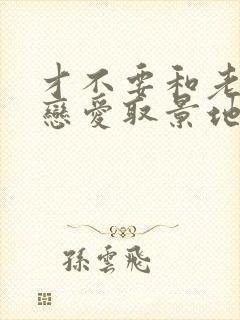 才不要和老
戀愛取景地
孫雲飛